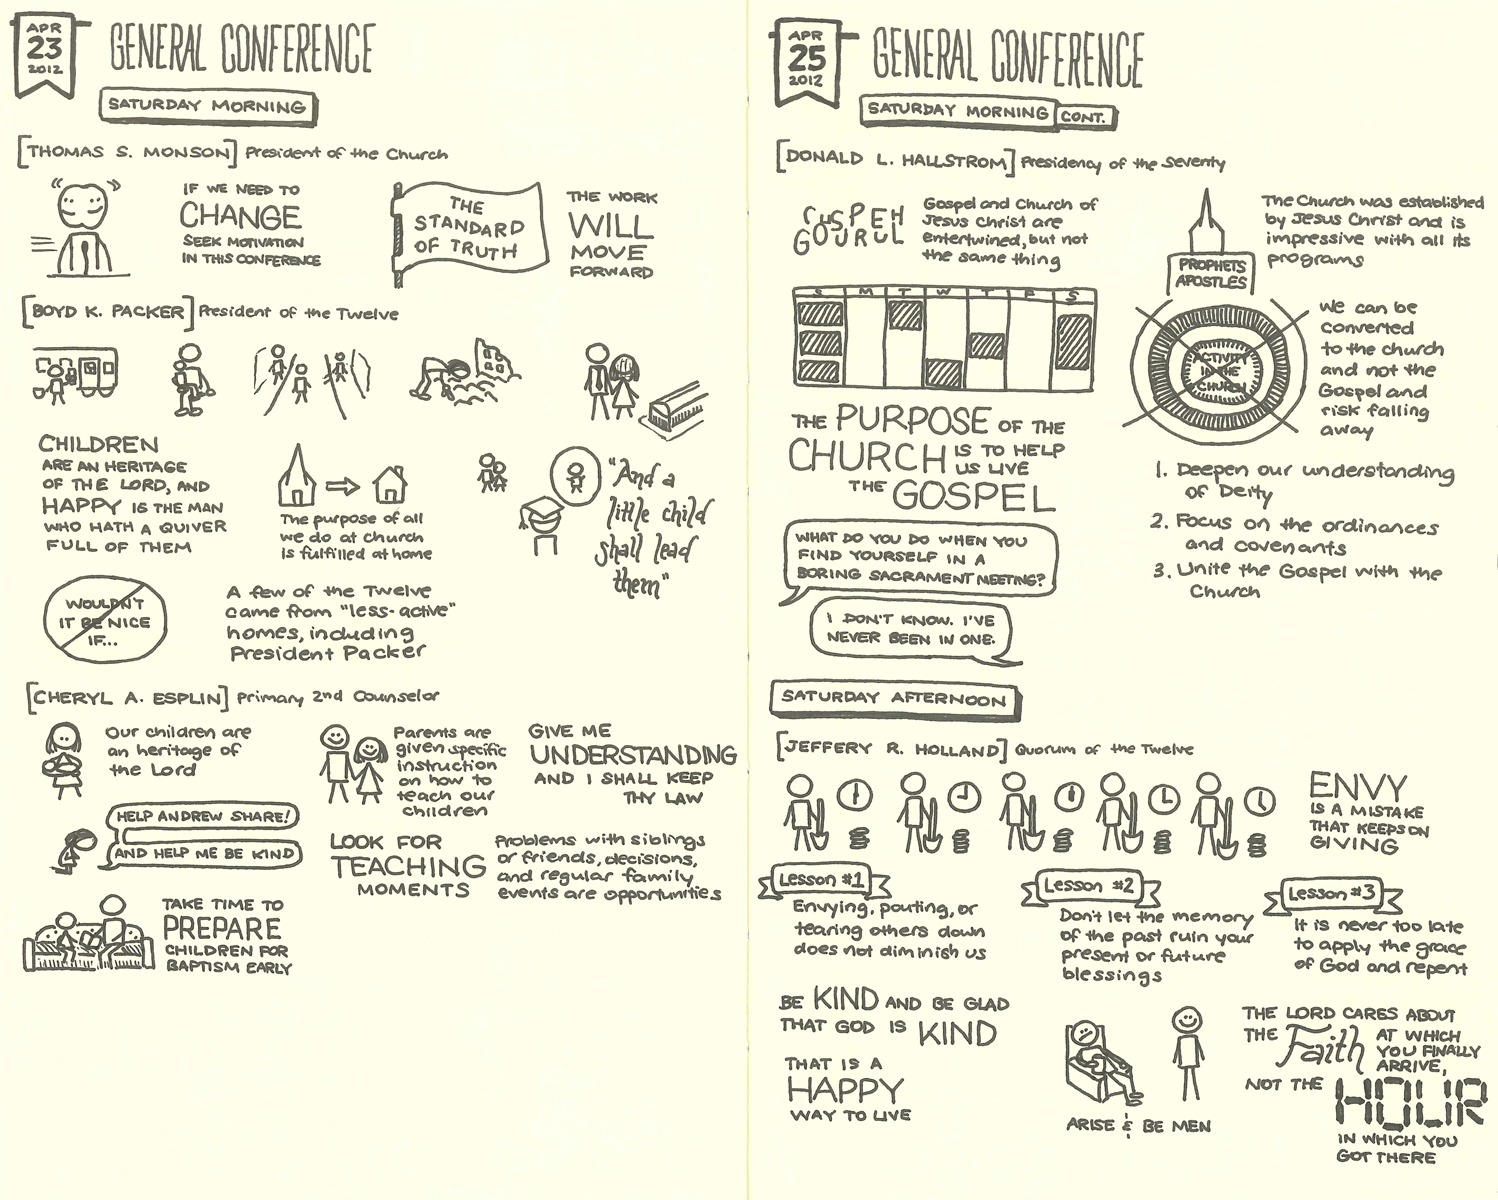 APR
23
2012
GENERAL CONFERENCE
SATURDAY MORNING
[THOMAS S. MONSON] President of the Church
IF WE NEED TO
CHANGE
SEEK MOTIVATION
IN THIS CONFERENCE
THE
STANDARD
OF TRUTH
THE WORK
WILL
MOVE
FORWARD
[BOYD K. PACKER] President of the Twelve
CHILDREN
ARE AN HERITAGE
OF THE LORD, AND
HAPPY IS THE MAN
WHO HATH A QUIVER
FULL OF THEM
The purpose of all
we do at church
is fulfilled at home
"And a
little child
shall lead
them"
WOULDN'T
IT BE NICE
IF...
A few of the Twelve
came from "less-active"
homes, including
President Packer
[CHERYL A. ESPLIN] Primary 2nd Counselor
Our children are
an heritage of
the Lord
Parents are
given specific
instruction
on how to
teach our
children
GIVE ME
UNDERSTANDING
AND I SHALL KEEP
THY LAW
HELP ANDREW SHARE!
AND HELP ME BE KIND
LOOK FOR
TEACHING
MOMENTS
Problems with siblings
or friends, decisions,
and regular family
events are opportunities
TAKE TIME TO
PREPARE
CHILDREN FOR
BAPTISM EARLY
APR
25
2012
GENERAL CONFERENCE
SATURDAY MORNING CONT.
[DONALD L. HALLSTROM] Presidency of the Seventy
Gospel and Church of
Jesus Christ are
entertwined, but not
the same thing
The Church was established
by Jesus Christ and is
impressive with all its
programs
PROPHETS
APOSTLES
S M T W T F S
ACTIVITY
IN THE
CHURCH
We can be
converted
to the church
and not the
Gospel and
risk falling
away
THE PURPOSE OF THE
CHURCH IS TO HELP
US LIVE
THE GOSPEL
1. Deepen our understanding
of Deity
2. Focus on the ordinances
and covenants
3. Unite the Gospel with the
Church
WHAT DO YOU DO WHEN YOU
FIND YOURSELF IN A
BORING SACRAMENT MEETING?
I DON'T KNOW. I'VE
NEVER BEEN IN ONE.
SATURDAY AFTERNOON
[JEFFERY R. HOLLAND] Quorum of the Twelve
ENVY
IS A MISTAKE
THAT KEEPS ON
GIVING
Lesson #1
Envying, pouting, or
tearing others down
does not diminish us
Lesson #2
Don't let the memory
of the past ruin your
present or future
blessings
Lesson #3
It is never too late
to apply the grace
of God and repent
BE KIND AND BE GLAD
THAT GOD IS KIND
THAT IS A
HAPPY
WAY TO LIVE
ARISE & BE MEN
THE LORD CARES ABOUT
THE Faith AT WHICH
YOU FINALLY
ARRIVE,
NOT THE HOUR
IN WHICH YOU
GOT THERE